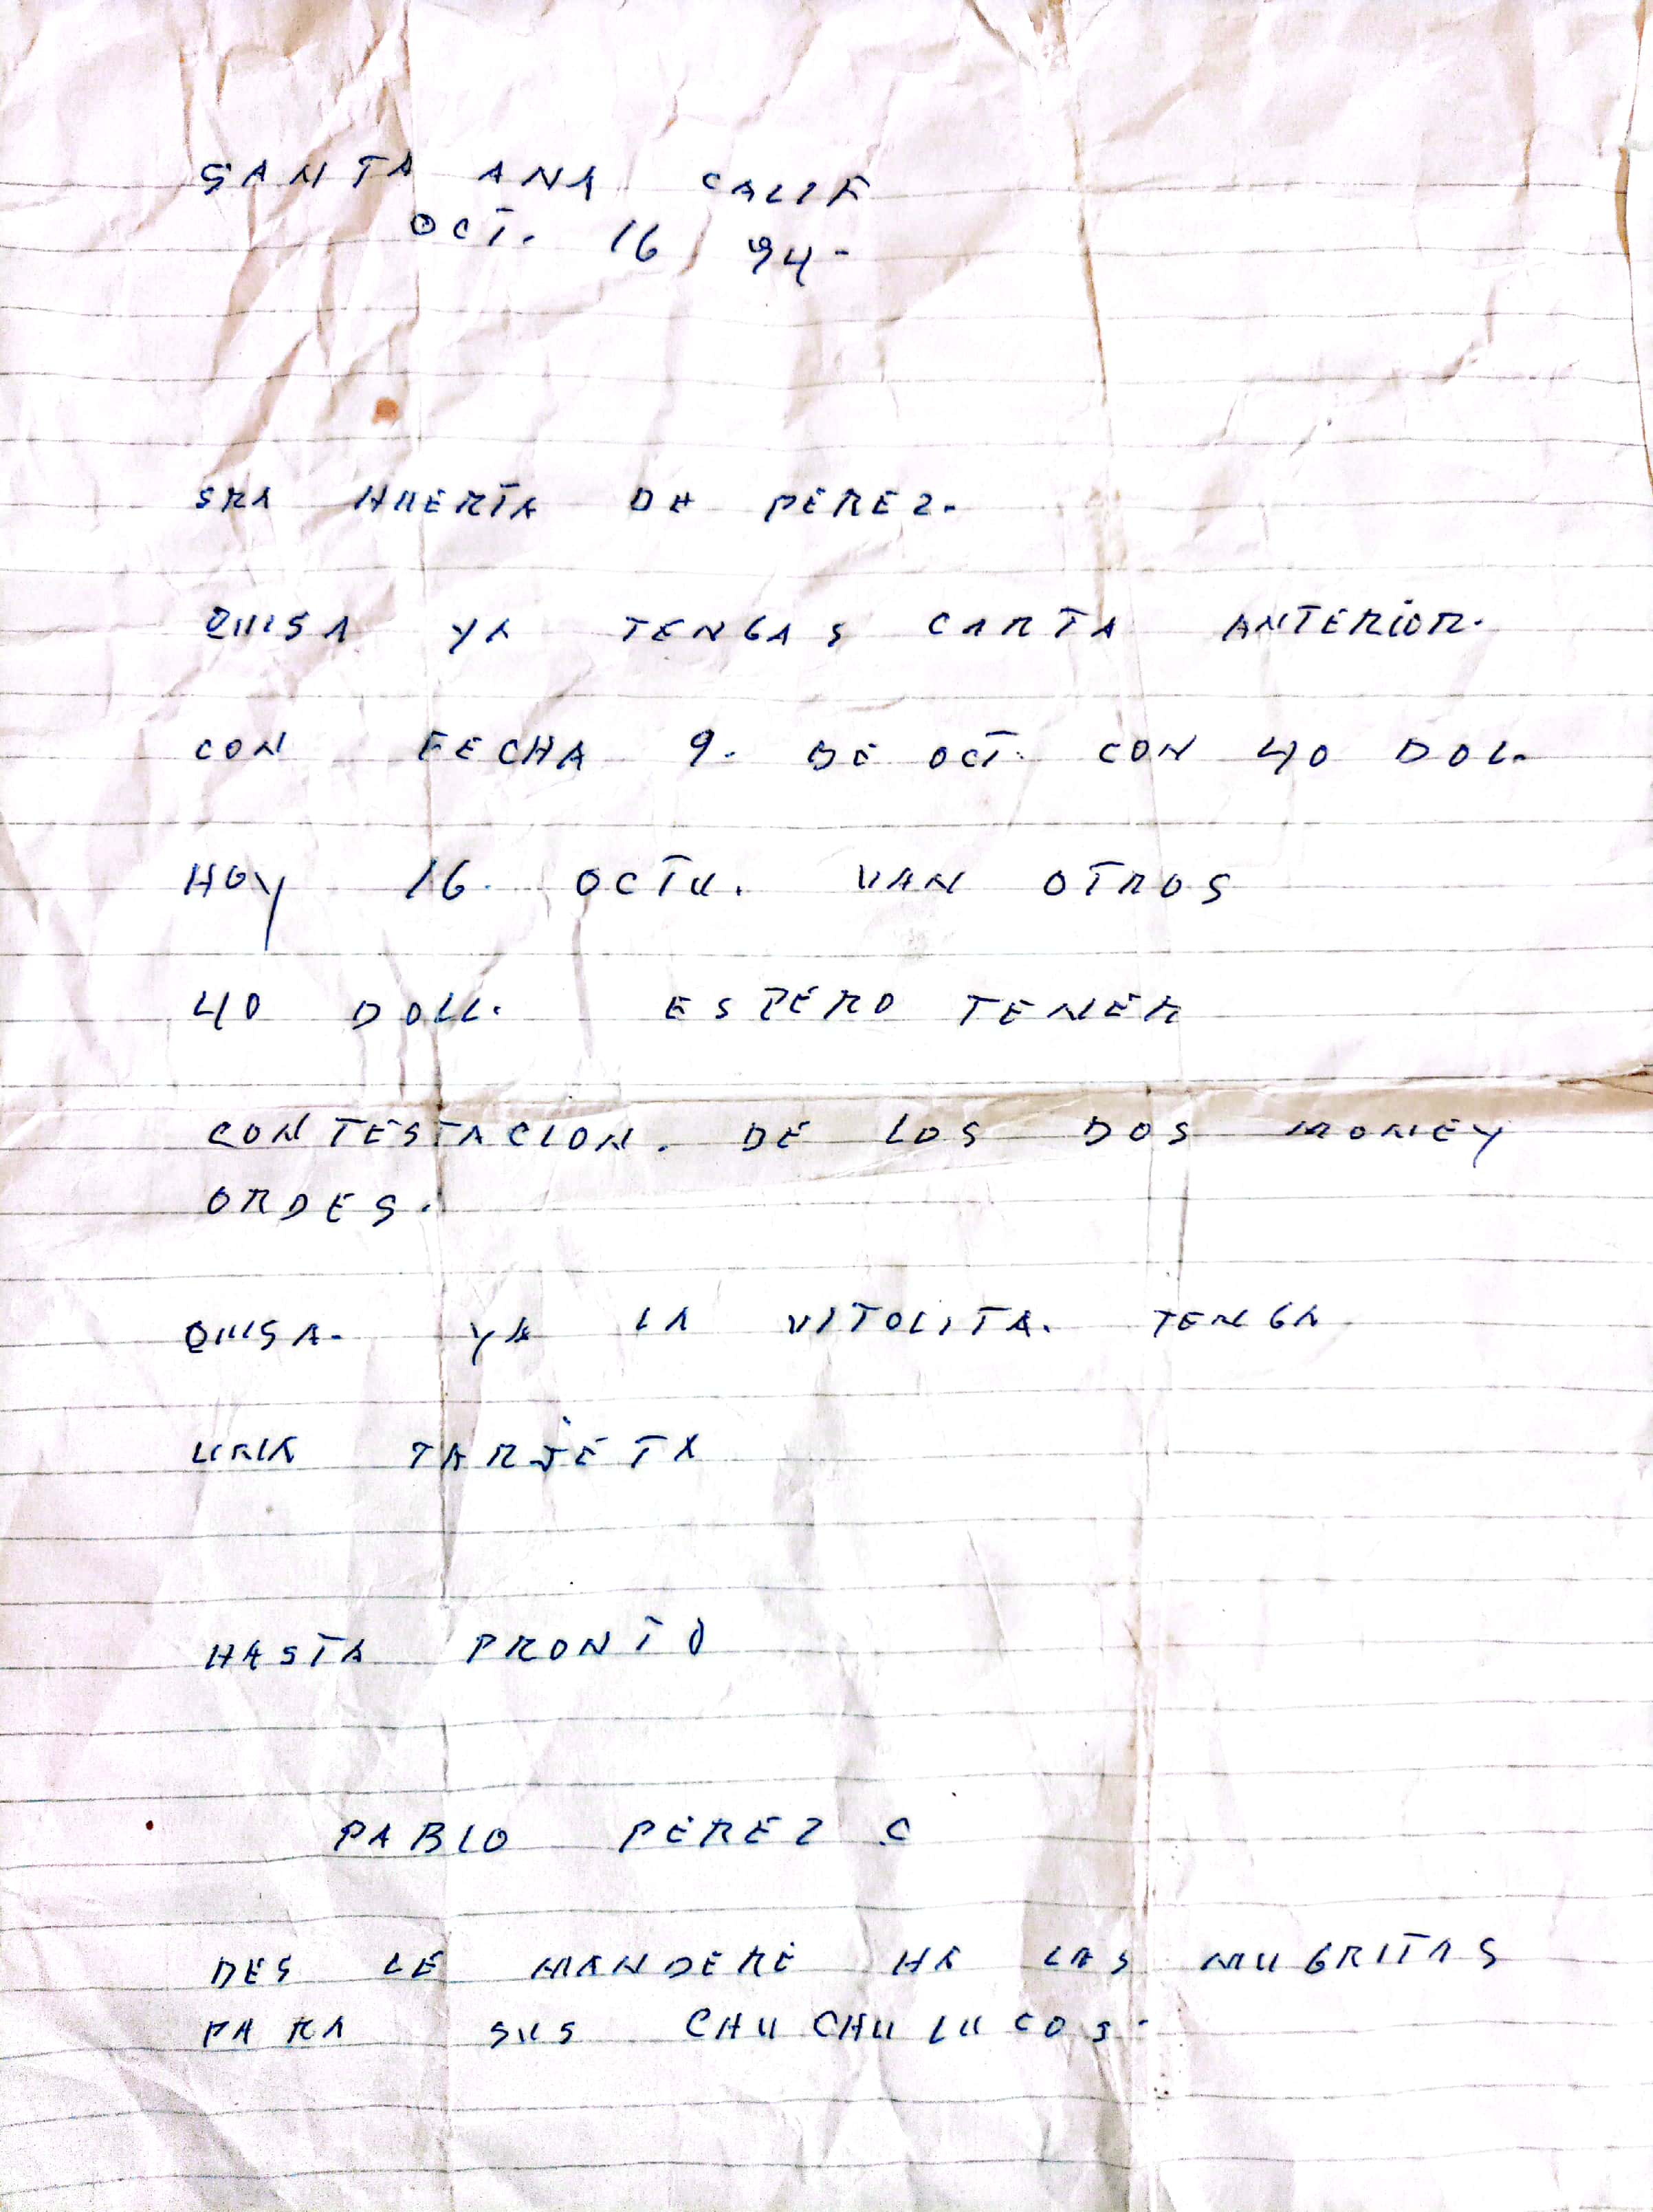 SANTA ANA CALIF
OCT. 16 / 94-
SRA HUERTA DE PEREZ.
QUISA YA TENGAS CARTA ANTERIOR.
CON FECHA 9. DE OCT. CON 40 DOL.
HOY 16. OCTU. VAN OTROS
40 DOLL. ESPERO TENER
CONTESTACION. DE LOS DOS MONEY
ORDES.
QUISA. YA LA VITOLITA. TENGA
UNA TARJETA
HASTA PRONTO
PABLO PEREZ C
DES LE MANDERE HA LAS MUGRITAS
PARA SUS CHUCHULUCOS.